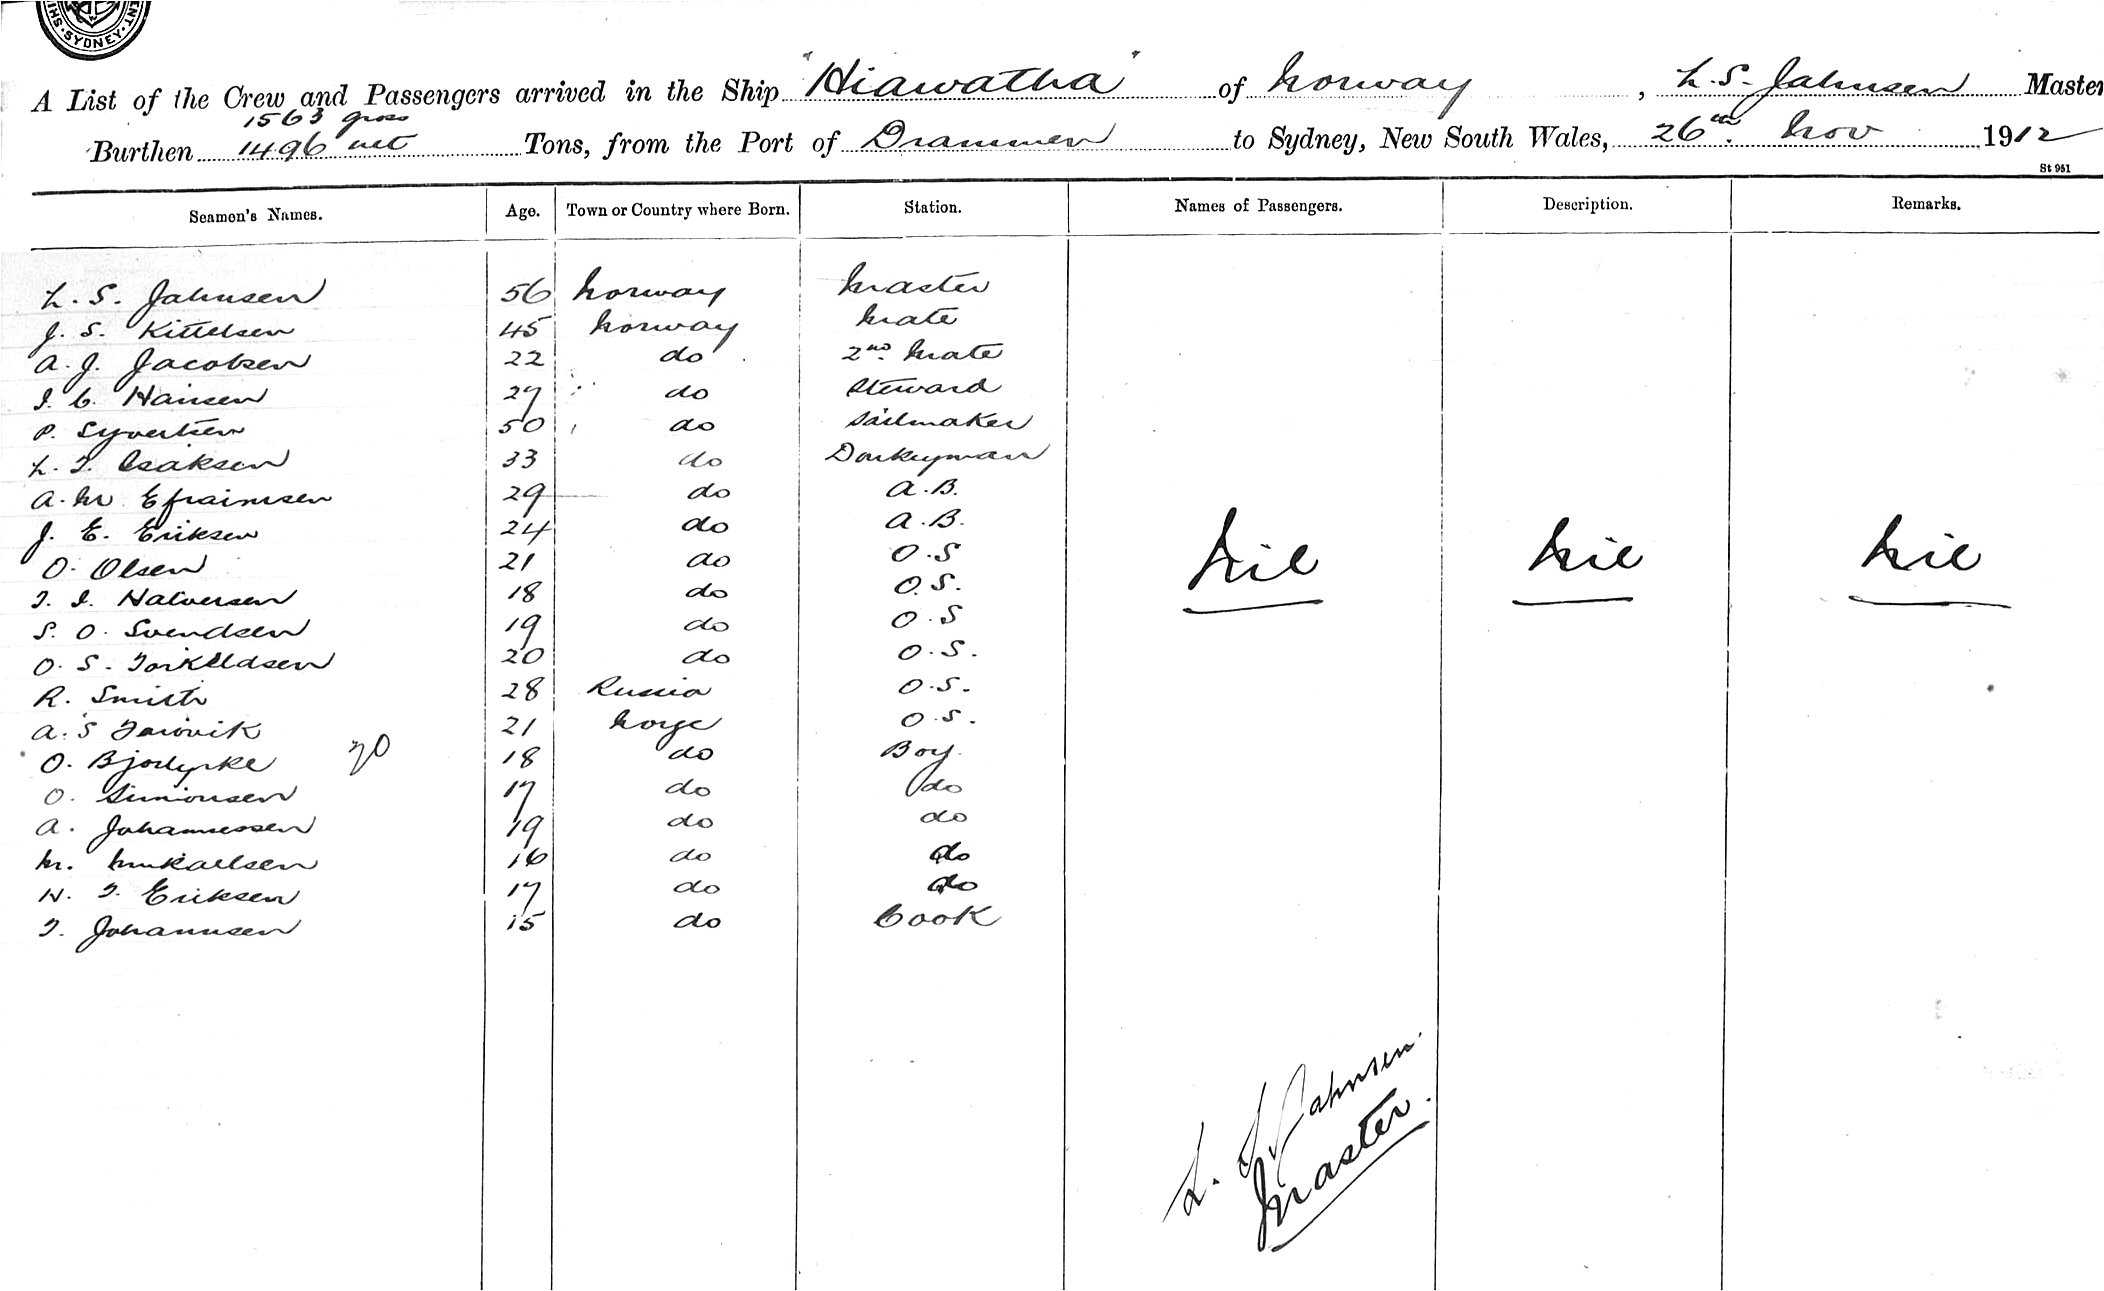 SYDNEY
A List of the Crew and Passengers arrived in the Ship "Hiawatha" of Norway, L. S. Jahnsen Master
1563 gross
Burthen 1496 net Tons, from the Port of Drammen to Sydney, New South Wales, 26th Nov 1912
St 951
Seamen's Names. Age. Town or Country where Born. Station. Names of Passengers. Description. Remarks.
L. S. Jahnsen 56 Norway Master
J. S. Kittelsen 45 Norway Mate
A. J. Jacobsen 22 do 2nd Mate
I. C. Hansen 27 do Steward
P. Syvertsen 50 do Sailmaker
L. T. Isaksen 33 do Donkeyman
A. M. Efraimsen 29 do A.B.
J. E. Eriksen 24 do A.B.
O. Olsen 21 do O.S
Nil Nil Nil
T. I. Halvorsen 18 do O.S.
S. O. Svendsen 19 do O.S
O. S. Torkildsen 20 do O.S.
R. Smith 28 Russia O.S.
A. S 21 Norge O.S.
O. 20 18 do Boy.
O. Simonsen 17 do do
A. Johannessen 19 do do
M. Mikaelsen 16 do do
H. T. Eriksen 17 do do
T. Johannsen 15 do Cook
L. S. Jahnsen.
Master.